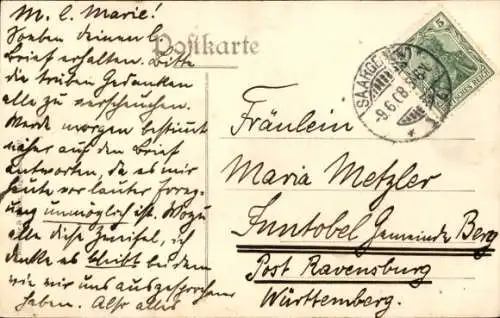 M. l. Marie!
Soeben deinen l.
Brief erhalten. Bitte
die trüben Gedanken
alle zu verscheuchen.
Werde morgen bestimmt
näher auf den Brief
antworten, da es mir
heute vor lauter Erreg-
ung unmöglich ist. Wozu
alle diese Zweifel, ich
denke es bleibt bei dem
wie wir uns ausgesprochen
haben. Also alles
Postkarte
5
SAARGEMÜND
9.6.08
Fräulein
Maria Metzler
Inntobel Gemeinde Berg
Post Ravensburg
Württemberg.